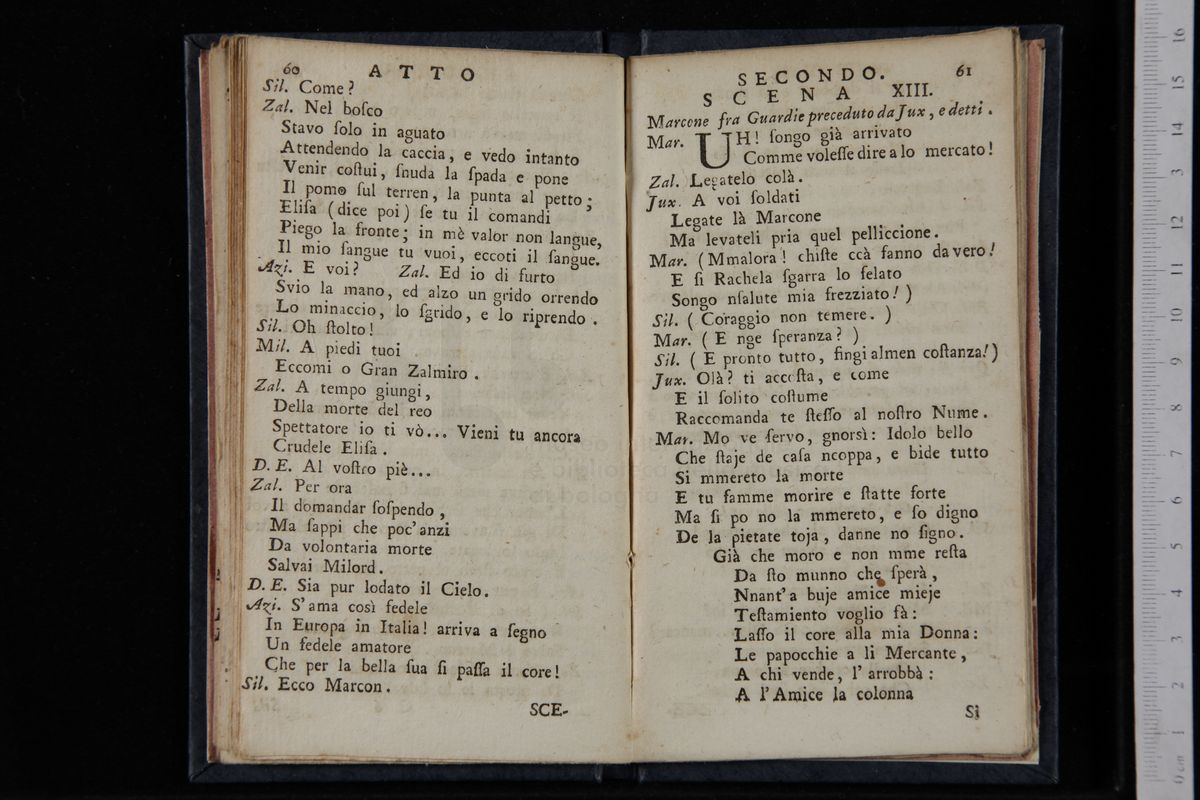 60 ATTO
Sil. Come?
Zal. Nel boſco
Stavo ſolo in aguato
Attendendo la caccia, e vedo intanto
Venir coſtui, ſnuda la ſpada e pone
Il pomo ſul terren, la punta al petto;
Eliſa (dice poi) ſe tu il comandi
Piego la fronte; in mè valor non langue,
Il mio ſangue tu vuoi, eccoti il ſangue.
Azi. E voi? Zal. Ed io di furto
Svio la mano, ed alzo un grido orrendo
Lo minaccio, lo ſgrido, e lo riprendo.
Sil. Oh ſtolto!
Mil. A piedi tuoi
Eccomi o Gran Zalmiro.
Zal. A tempo giungi,
Della morte del reo
Spettatore io ti vò... Vieni tu ancora
Crudele Eliſa.
D. E. Al voſtro piè...
Zal. Per ora
Il domandar ſoſpendo,
Ma ſappi che poc'anzi
Da volontaria morte
Salvai Milord.
D. E. Sia pur lodato il Cielo.
Azi. S'ama così fedele
In Europa in Italia! arriva a ſegno
Un fedele amatore
Che per la bella ſua ſi paſſa il core!
Sil. Ecco Marcon.
SCE-
SECONDO. 61
SCENA XIII.
Marcone fra Guardie preceduto da Jux, e detti.
Mar. UH! ſongo già arrivato
Comme voleſſe dire a lo mercato!
Zal. Legatelo colà.
Jux. A voi ſoldati
Legate là Marcone
Ma levateli pria quel pelliccione.
Mar. (Mmalora! chiſte ccà fanno da vero!
E ſi Rachela ſgarra lo felato
Songo nſalute mia frezziato!)
Sil. (Coraggio non temere.)
Mar. (E nge ſperanza?)
Sil. (E pronto tutto, fingi almen coſtanza!)
Jux. Olà? ti accoſta, e come
E il ſolito coſtume
Raccomanda te ſteſſo al noſtro Nume.
Mar. Mo ve ſervo, gnorsì: Idolo bello
Che ſtaje de caſa ncoppa, e bide tutto
Si mmereto la morte
E tu famme morire e ſtatte forte
Ma ſi po no la mmereto, e ſo digno
De la pietate toja, danne no ſigno.
Già che moro e non mme reſta
Da ſto munno che ſperà,
Nnant'a buje amice mieje
Teſtamiento voglio fà:
Laſſo il core alla mia Donna:
Le papocchie a li Mercante,
A chi vende, l'arrobbà:
A l'Amice la colonna
Sì